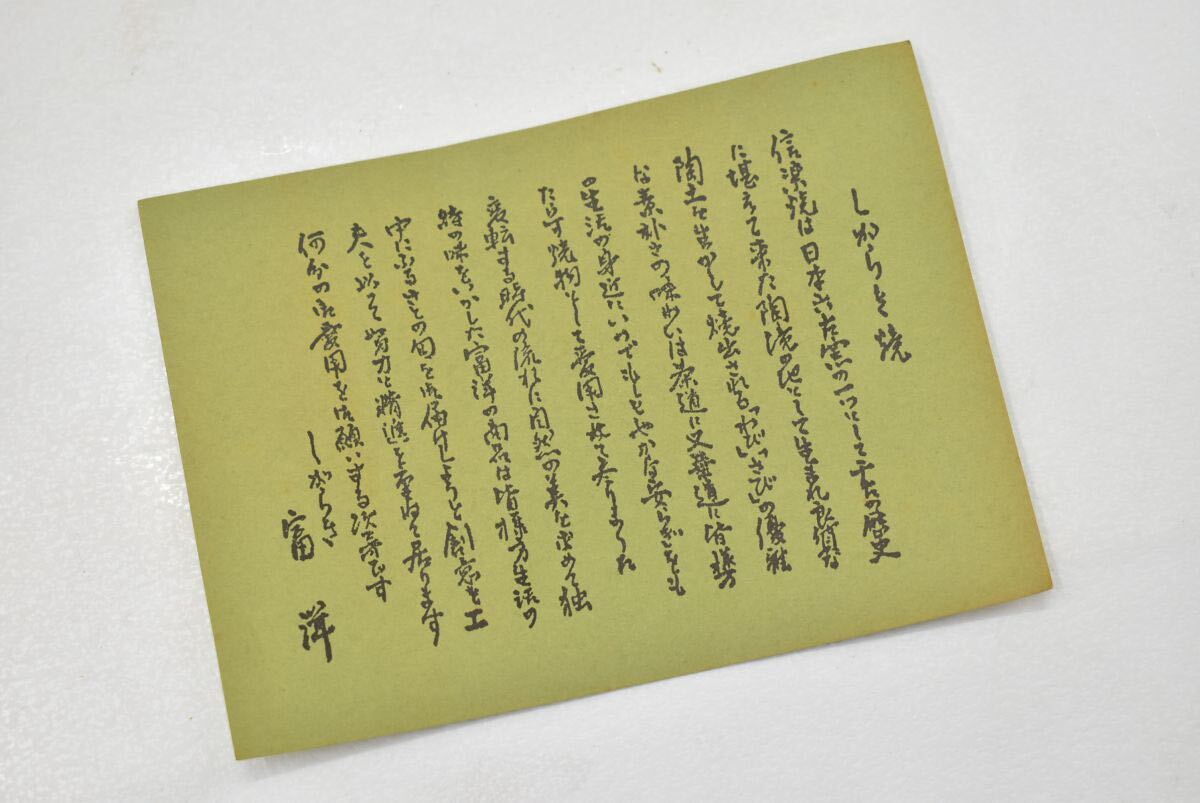 しがらき焼
信楽焼は日本六古窯の一つにして千古の歴史
に堪えて来た陶境の地として生まれ良質な
陶土を生かして焼出される「わび」「さび」の優雅
な素朴さの味わいは茶道に又華道に皆様方
の生活の身近にいつでもしとやかな安らぎをも
たらす焼物として愛用されて参りました
変転する時代の流れに自然の美を求めて独
特の味をいかした富洋の商品は皆様方生活の
中にふるさとの匂を御届けしようと創意と工
夫を以って努力と精進を重ねて居ります
何分の御愛用を御願いする次第です
しがらき
富洋